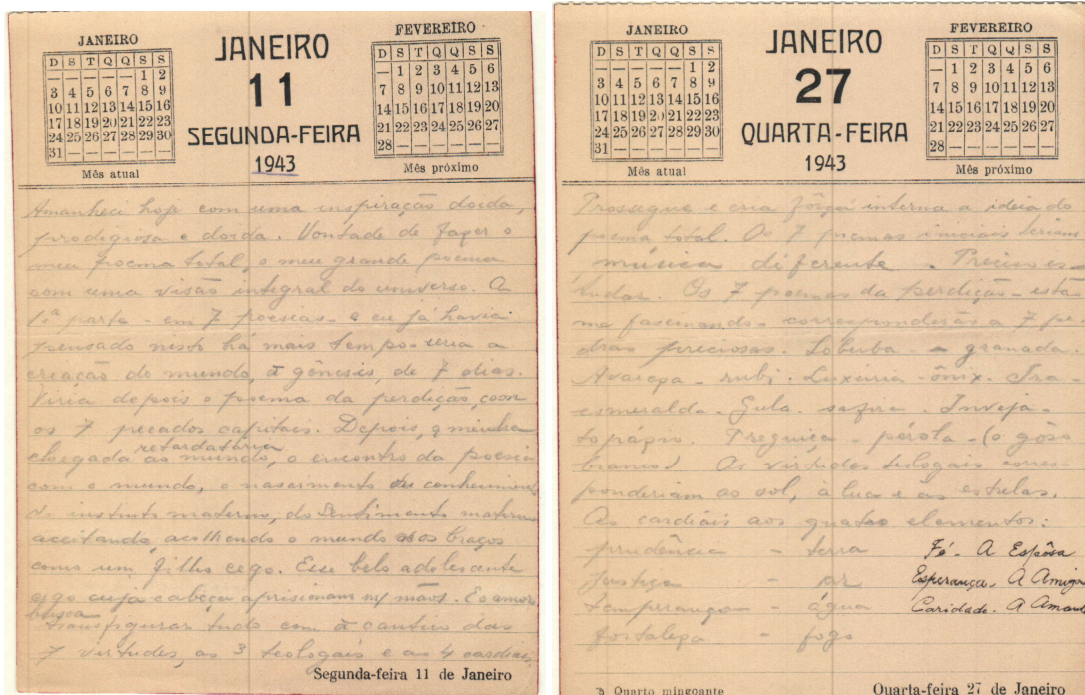 JANEIRO
D S T Q Q S S
— — — — — 1 2
3 4 5 6 7 8 9
10 11 12 13 14 15 16
17 18 19 20 21 22 23
24 25 26 27 28 29 30
31 — — — — — —
Mês atual
JANEIRO
11
SEGUNDA-FEIRA
1943
FEVEREIRO
D S T Q Q S S
— 1 2 3 4 5 6
7 8 9 10 11 12 13
14 15 16 17 18 19 20
21 22 23 24 25 26 27
28 — — — — — —
Mês próximo
Amanheci hoje com uma inspiração doida,
prodigiosa e doida. Vontade de fazer o
meu poema total, o meu grande poema
com uma visão integral do universo. A
1ª parte - em 7 poesias - e eu já havia
pensado nisto há mais tempo - seria a
creação do mundo, a gênesis, de 7 dias.
Viria depois o poema da perdição, com
os 7 pecados capitais. Depois, a minha
retardatária
chegada ao mundo, o encontro da poesia
com o mundo, o nascimento do conhecimento
do instinto materno, do Sentimento materno
aceitando, acolhendo o mundo nos braços
como um filho cego. Esse belo adolescente
cego cuja cabeça aprisionam mãos. E o amor
busca
transfigurar tudo com o cantico das
7 virtudes, as 3 teologais e as 4 cardiais.
Segunda-feira 11 de Janeiro
JANEIRO
D S T Q Q S S
— — — — — 1 2
3 4 5 6 7 8 9
10 11 12 13 14 15 16
17 18 19 20 21 22 23
24 25 26 27 28 29 30
31 — — — — — —
Mês atual
JANEIRO
27
QUARTA-FEIRA
1943
FEVEREIRO
D S T Q Q S S
— 1 2 3 4 5 6
7 8 9 10 11 12 13
14 15 16 17 18 19 20
21 22 23 24 25 26 27
28 — — — — — —
Mês próximo
Prossegue e cria fôrça interna a ideia do
poema total. Os 7 poemas iniciais teriam
música diferente. Preciso es-
tudar. Os 7 poemas da perdição - estão
me fascinando - corresponderão a 7 pe
dras preciosas. Soberba - granada.
Avareza - rubi. Luxúria - ônix. Ira -
esmeralda. Gula - safira. Inveja -
topázio. Preguiça - pérola - (o gôso
branco) As virtudes teologais corres-
ponderiam ao sol, à lua e às estrelas.
As cardiais aos quatro elementos:
prudência - terra Fé - A Espôsa
justiça - ar Esperança - A Amiga
temperança - água Caridade - A Amante
fortaleza - fogo
Quarto minguante
Quarta-feira 27 de Janeiro